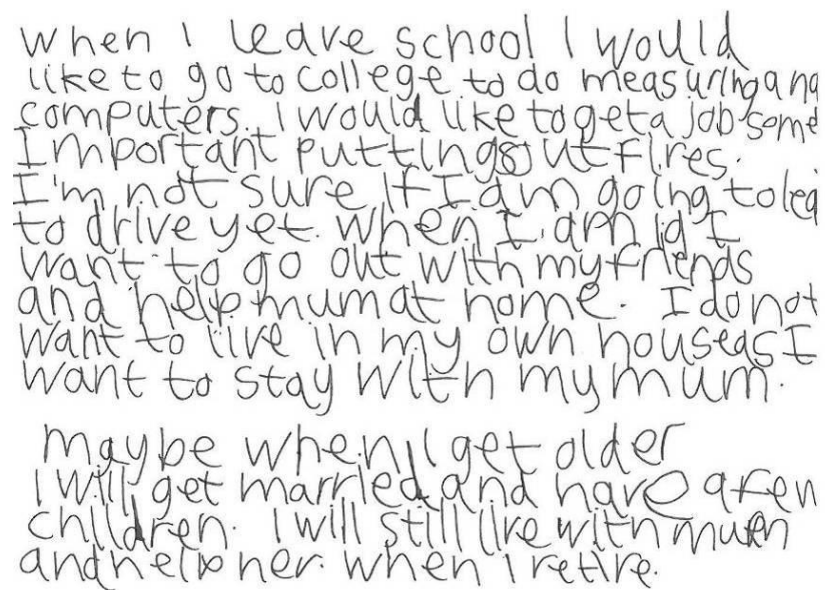 When I leave school I would
like to go to college to do measuring and
computers. I would like to get a job some
Important puttings out fires.
I'm not sure if I am going to lea
to drive yet. When I am 19 I
want to go out with my friends
and help mum at home. I do not
want to live in my own house as I
want to stay with my mum.
maybe when I get older
I will get married and have a few
children. I will still live with mum
and help her when I retire.